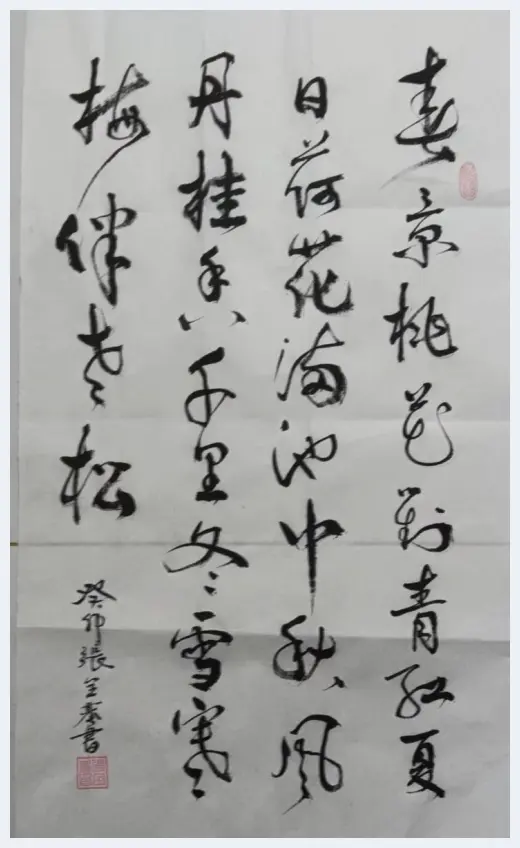 春景桃花對青紅夏
日荷花满池中秋風
丹桂香千里冬雪寒
梅伴老松
癸卯張全泰書